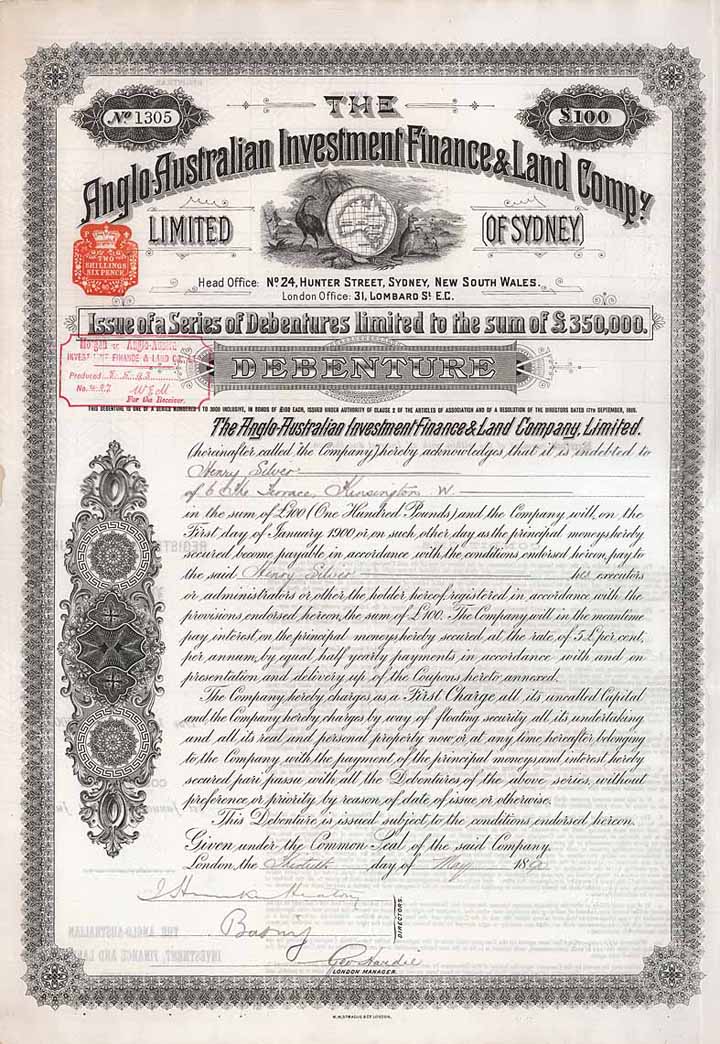 No 1305
£100
THE
Anglo-Australian Investment Finance & Land Compy.
LIMITED
(OF SYDNEY)
TWO SHILLINGS SIX PENCE
Head Office: No 24, HUNTER STREET, SYDNEY, NEW SOUTH WALES.
London Office: 31, LOMBARD St. E.C.
Issue of a Series of Debentures limited to the sum of £350,000.
DEBENTURE
INVEST
FINANCE & LAND CO.
Produced
No.
W E M
For the Receiver.
THIS DEBENTURE IS ONE OF A SERIES NUMBERED 1 TO 3500 INCLUSIVE, IN BONDS OF £100 EACH, ISSUED UNDER AUTHORITY OF CLAUSE 2 OF THE ARTICLES OF ASSOCIATION AND OF A RESOLUTION OF THE DIRECTORS DATED 17TH SEPTEMBER,
The Anglo-Australian Investment Finance & Land Company, Limited.
(hereinafter called the Company) hereby acknowledges that it is indebted to
Henry Silver
of 6 Terrace, Kensington W.
in the sum of £100 (One Hundred Pounds) and the Company will, on the
First day of January 1900 or on such other day as the principal moneys hereby
secured become payable in accordance with the conditions endorsed hereon, pay to
the said Henry Silver his executors
or administrators or other the holder hereof registered in accordance with the
provisions endorsed hereon the sum of £100. The Company will in the meantime
pay interest on the principal moneys hereby secured at the rate of 5 £ per cent.
per annum by equal half yearly payments in accordance with and on
presentation and delivery up of the Coupons hereto annexed.
The Company hereby charges as a First Charge all its uncalled Capital
and the Company hereby charges by way of floating security all its undertaking
and all its real and personal property now or at any time hereafter belonging
to the Company with the payment of the principal moneys and interest hereby
secured pari passu with all the Debentures of the above series, without
preference or priority by reason of date of issue or otherwise.
This Debenture is issued subject to the conditions endorsed hereon.
Given under the Common Seal of the said Company.
London, the day of May 18
DIRECTORS.
Geo Hardie
LONDON MANAGER.